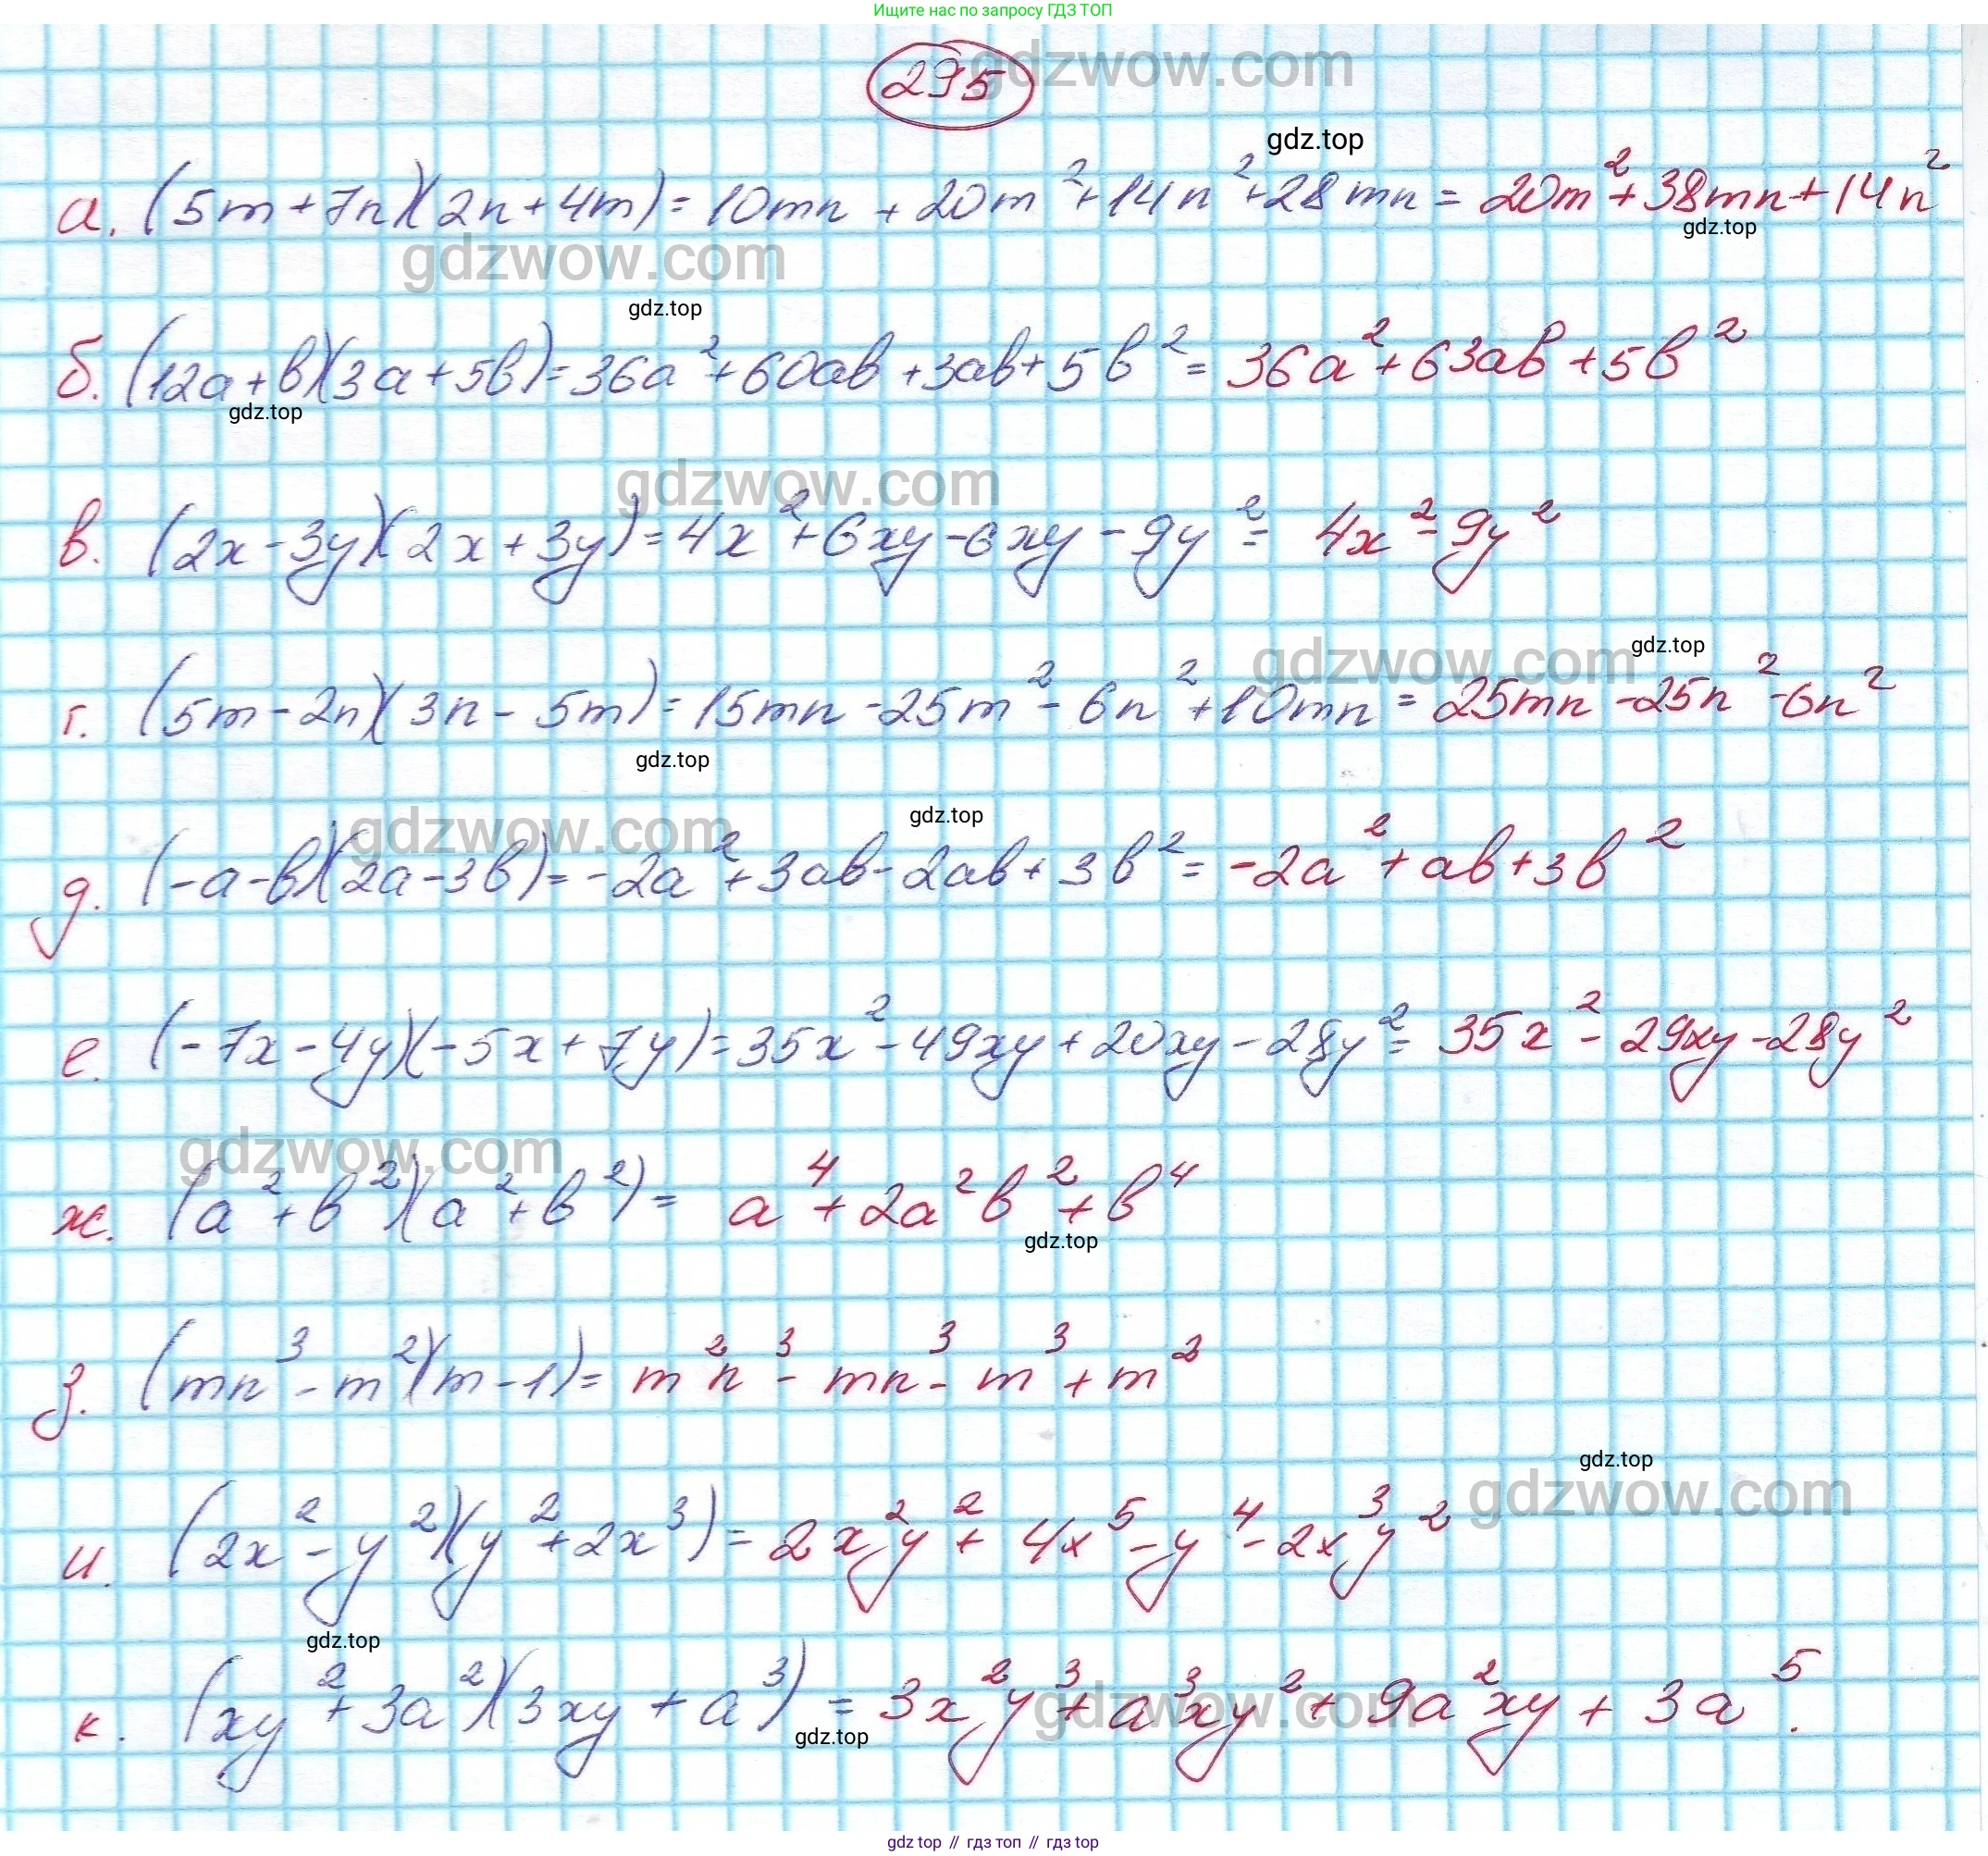 Ищите нас по запросу ГДЗ ТОП
295
gdzwow.com
gdz.top
а. (5m+7n)(2n+4m)=10mn+20m²+14n²+28mn=20m²+38mn+14n²
gdz.top
gdzwow.com
gdz.top
б. (12a+b)(3a+5b)=36a²+60ab+3ab+5b²=36a²+63ab+5b²
gdz.top
gdzwow.com
в. (2x-3y)(2x+3y)=4x²+6xy-6xy-9y²=4x²-9y²
gdzwow.com
gdz.top
г. (5m-2n)(3n-5m)=15mn-25m²-6n²+10mn=25mn-25n²-6n²
gdz.top
gdzwow.com
gdz.top
д. (-a-b)(2a-3b)=-2a²+3ab-2ab+3b²=-2a²+ab+3b²
е. (-7x-4y)(-5x+7y)=35x²-49xy+20xy-28y²=35x²-29xy-28y²
gdzwow.com
ж. (a²+b²)(a²+b²)=a⁴+2a²b²+b⁴
gdz.top
з. (mn³-m²)(m-1)=m²n³-mn³-m³+m²
gdz.top
gdzwow.com
и. (2x²-y²)(y²+2x³)=2x²y²+4x⁵-y⁴-2x³y²
gdz.top
к. (xy²+3a²)(3xy+a³)=3x²y³+a³xy²+9a²xy+3a⁵.
gdzwow.com
gdz.top
gdz top // гдз топ // гдз top